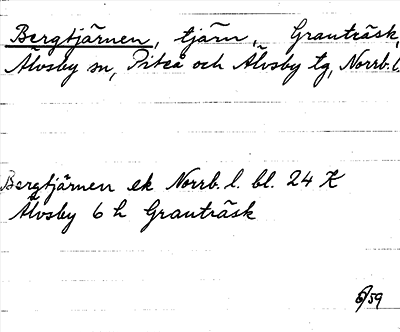 Bergtjärnen, tjärn, Granträsk,
Älvsby sn, Piteå och Älvsby tg, Norrb.l.
Bergtjärnen ek Norrb.l. bl. 24 K
Älvsby 6 h Granträsk
6/59